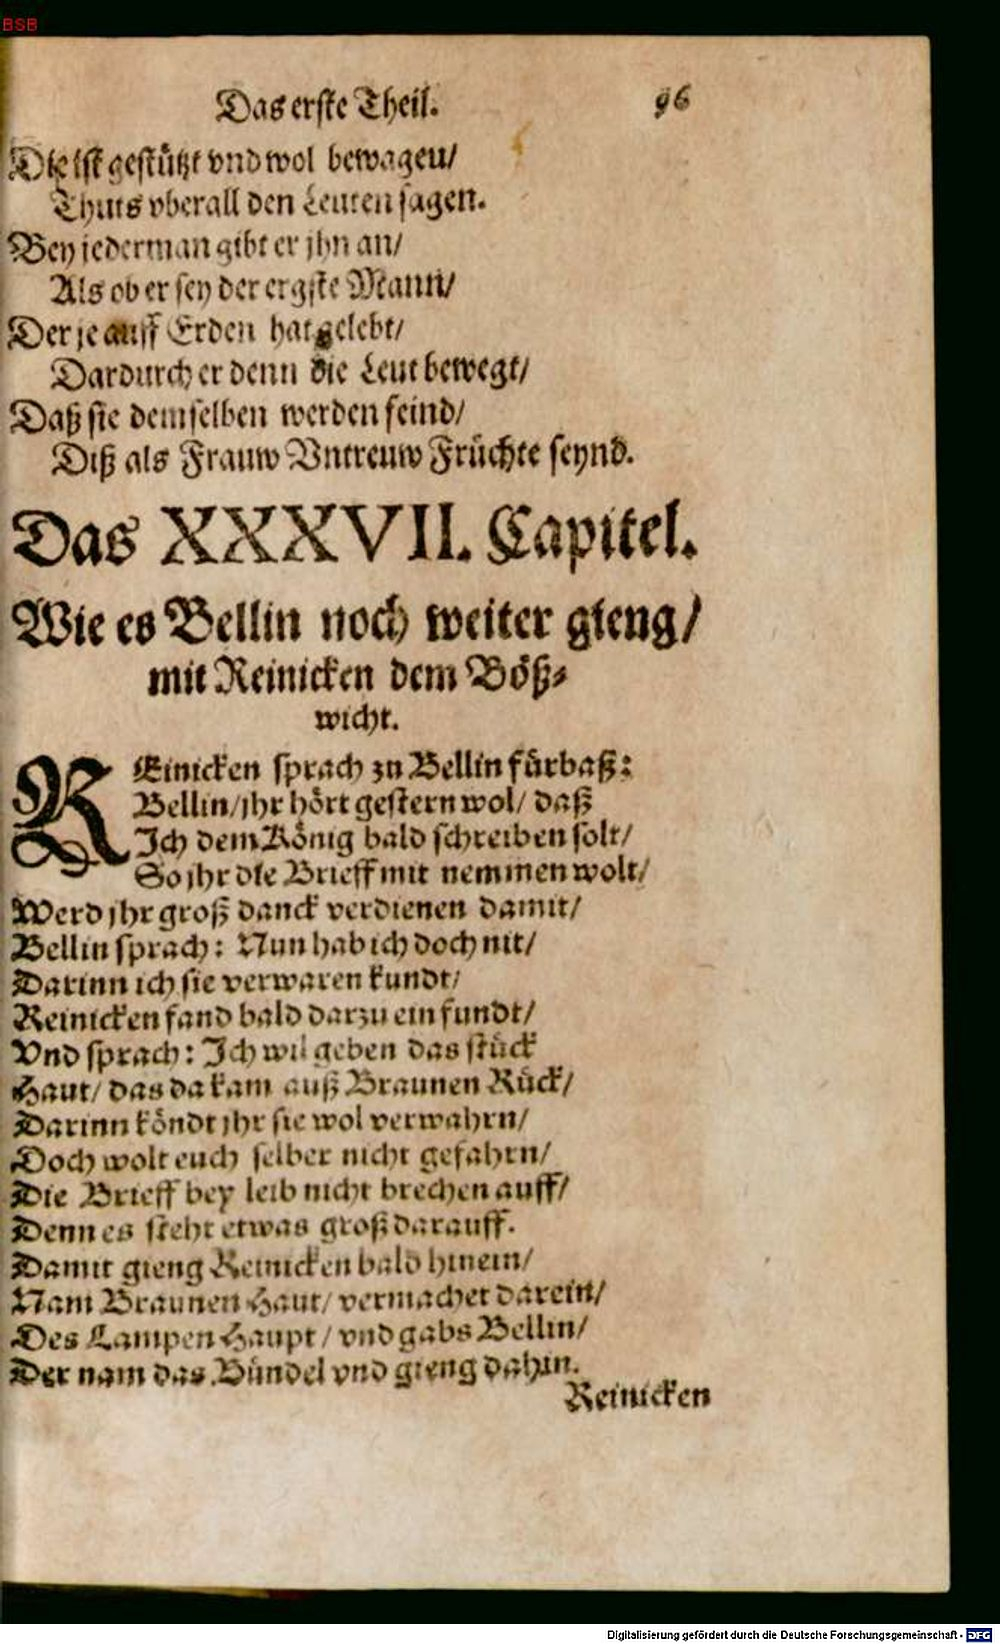 BSB
Das erste Theil. 96
Die ist gestützt vnd wol bewagen/
Thuts vberall den Leuten sagen.
Bey jederman gibt er jhn an/
Als ob er sey der ergste Mann/
Der je auff Erden hat gelebt/
Dardurch er denn die Leut bewegt/
Daß sie demselben werden feind/
Diß als Frauw Vntreuw Früchte seynd.
Das XXXVII. Capitel.
Wie es Bellin noch weiter gieng/
mit Reinicken dem Böß⸗
wicht.
REinicken sprach zu Bellin fürbaß:
Bellin/ jhr hört gestern wol/ daß
Ich dem König bald schreiben solt/
So jhr die Brieff mit nemmen wolt/
Werd jhr groß danck verdienen damit/
Bellin sprach: Nun hab ich doch nit/
Darinn ich sie verwaren kundt/
Reinicken fand bald darzu ein fundt/
Vnd sprach: Ich wil geben das stück
Haut/ das da kam auß Braunen Rück/
Darinn köndt jhr sie wol verwahrn/
Doch wolt euch selber nicht gefahrn/
Die Brieff bey leib nicht brechen auff/
Denn es steht etwas groß darauff.
Damit gieng Reinicken bald hinein/
Nam Braunen Haut/ vermachet darein/
Des Lampen Haupt/ vnd gabs Bellin/
Der nam das Bündel vnd gieng dahin.
Reinicken
Digitalisierung gefördert durch die Deutsche Forschungsgemeinschaft - DFG